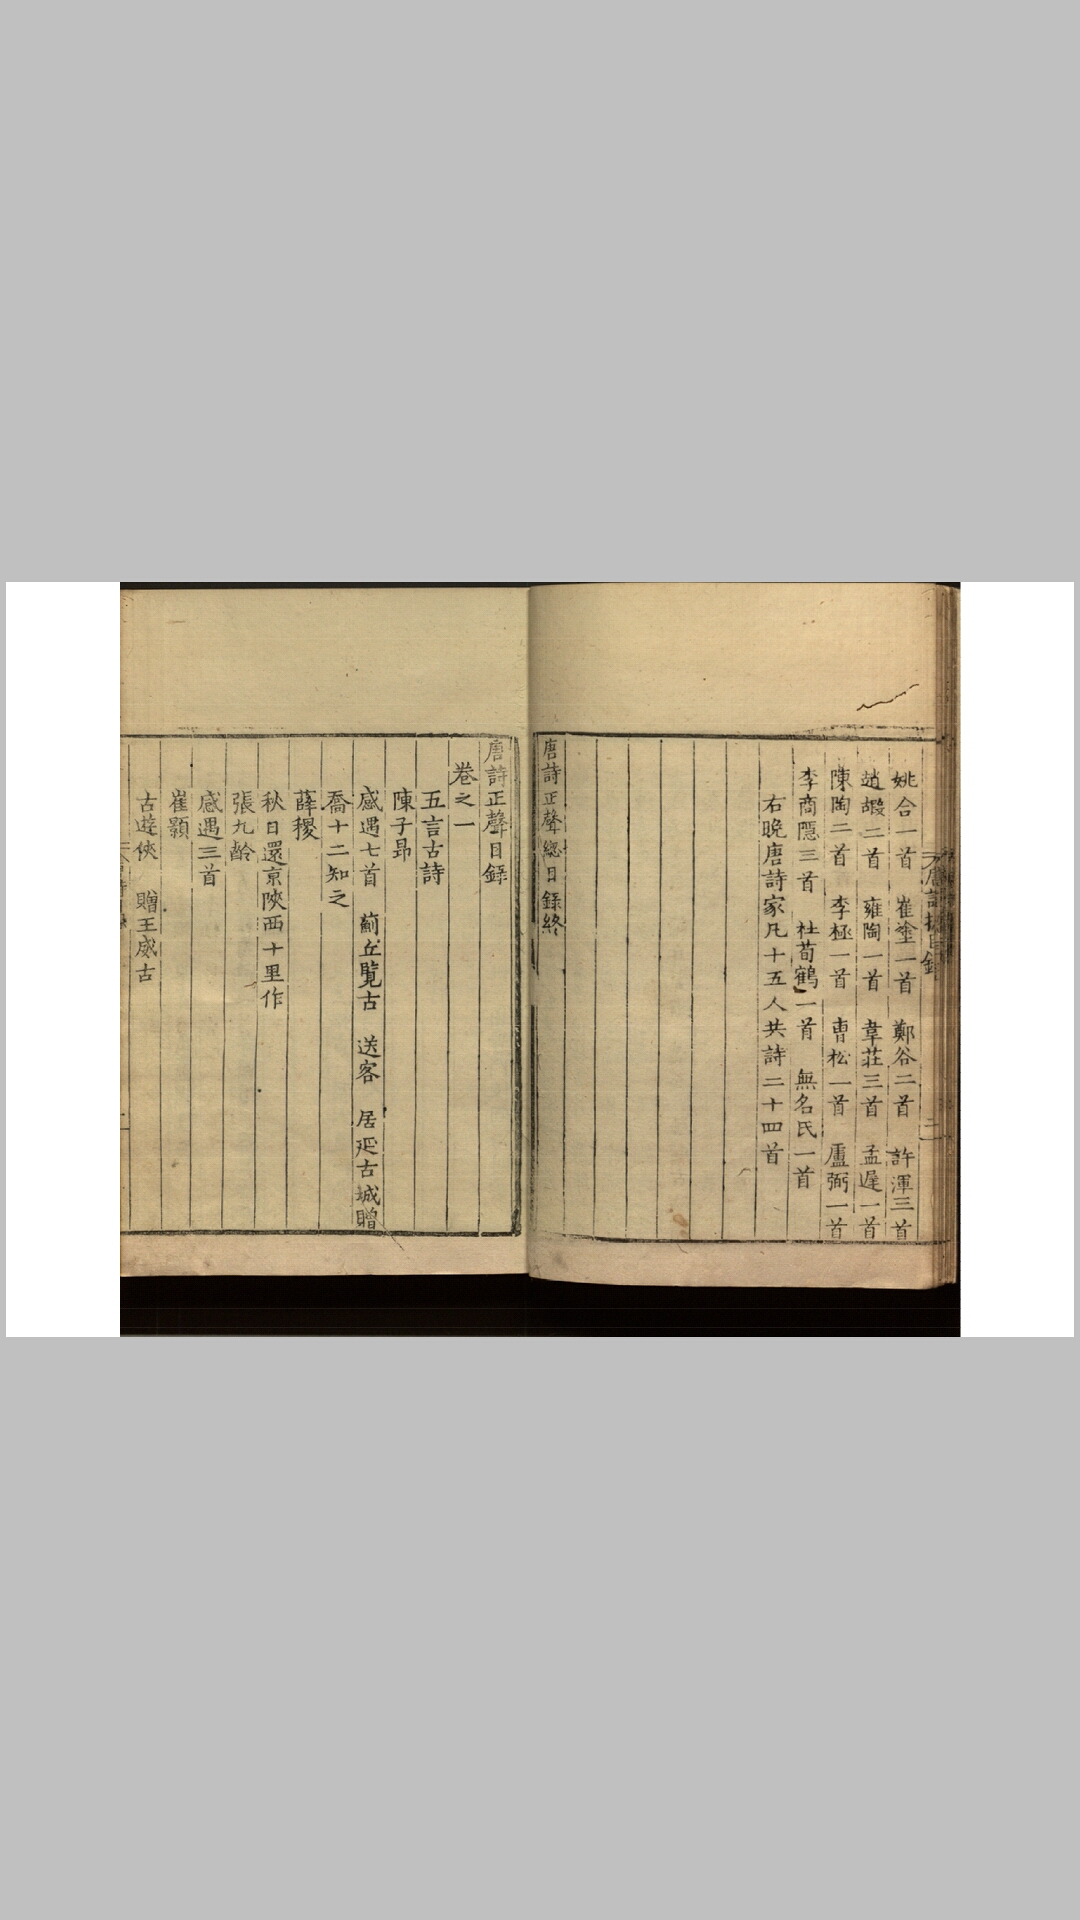 姚合一首　崔塗一首　鄭谷二首　許渾三首
趙嘏二首　雍陶一首　韋莊三首　孟遲一首
陳陶二首　李極一首　曹松一首　盧弼一首
李商隱三首　杜荀鶴一首　無名氏一首
右晚唐詩家凡十五人共詩二十四首
唐詩正聲總目錄終
唐詩正聲目錄
卷之一
五言古詩
陳子昂
感遇七首　薊丘覽古　送客　居延古城贈
喬十二知之
薛稷
秋日還京陝西十里作
張九齡
感遇三首
崔顥
古遊俠　贈王威古